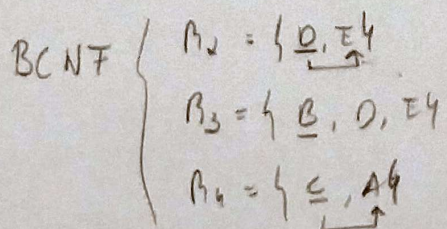 BCNF
R2 = { D, E }
R3 = { B, D, E }
R4 = { C, A }